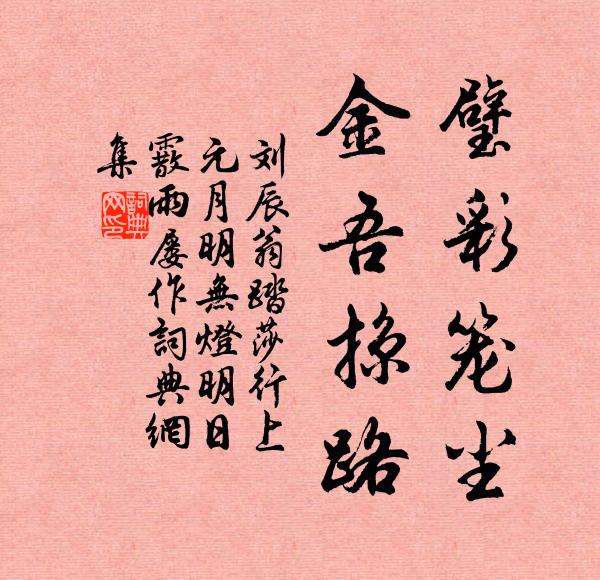 璧彩笼尘
金吾掠路
刘辰翁踏莎行上
元月明無燈明日
霰雨屡作詞典網
集
詞典網印